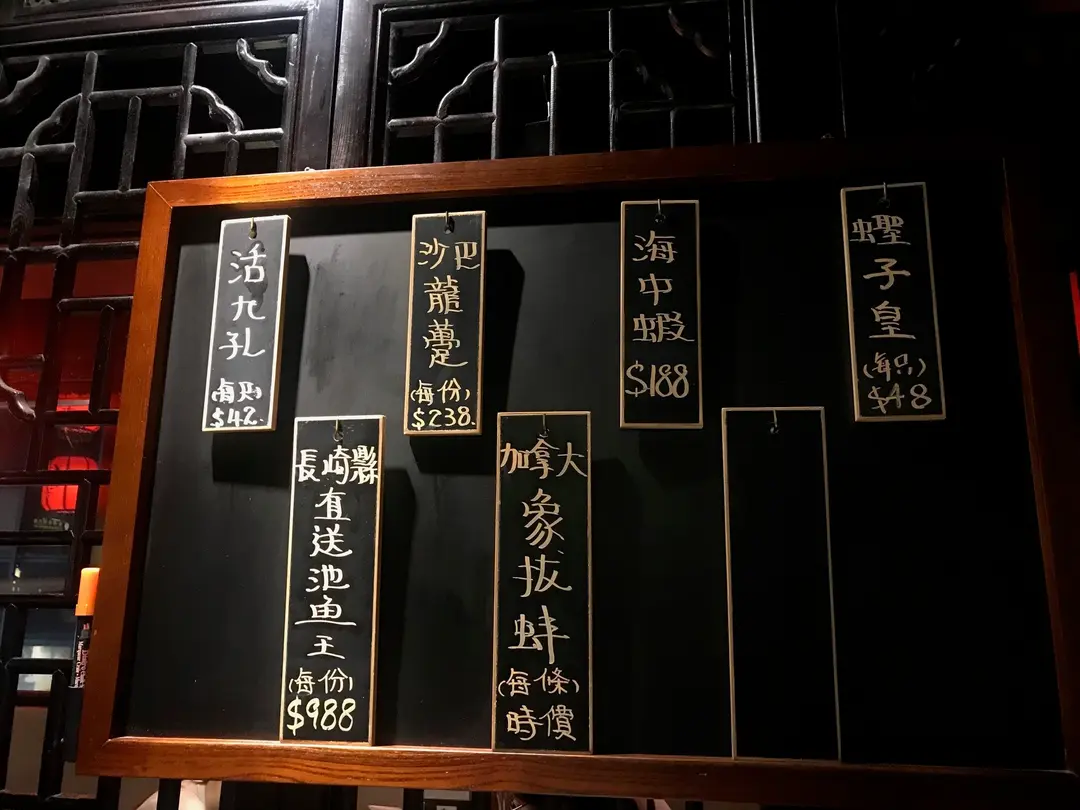 活九孔
(每只)
$42.
沙巴龍躉
(每份)
$238.
海中蝦
$188
蟶子皇
(每只)
$48
長崎縣
直送池鱼王
(每份)
$988
加拿大
象拔蚌
(每條)
時價